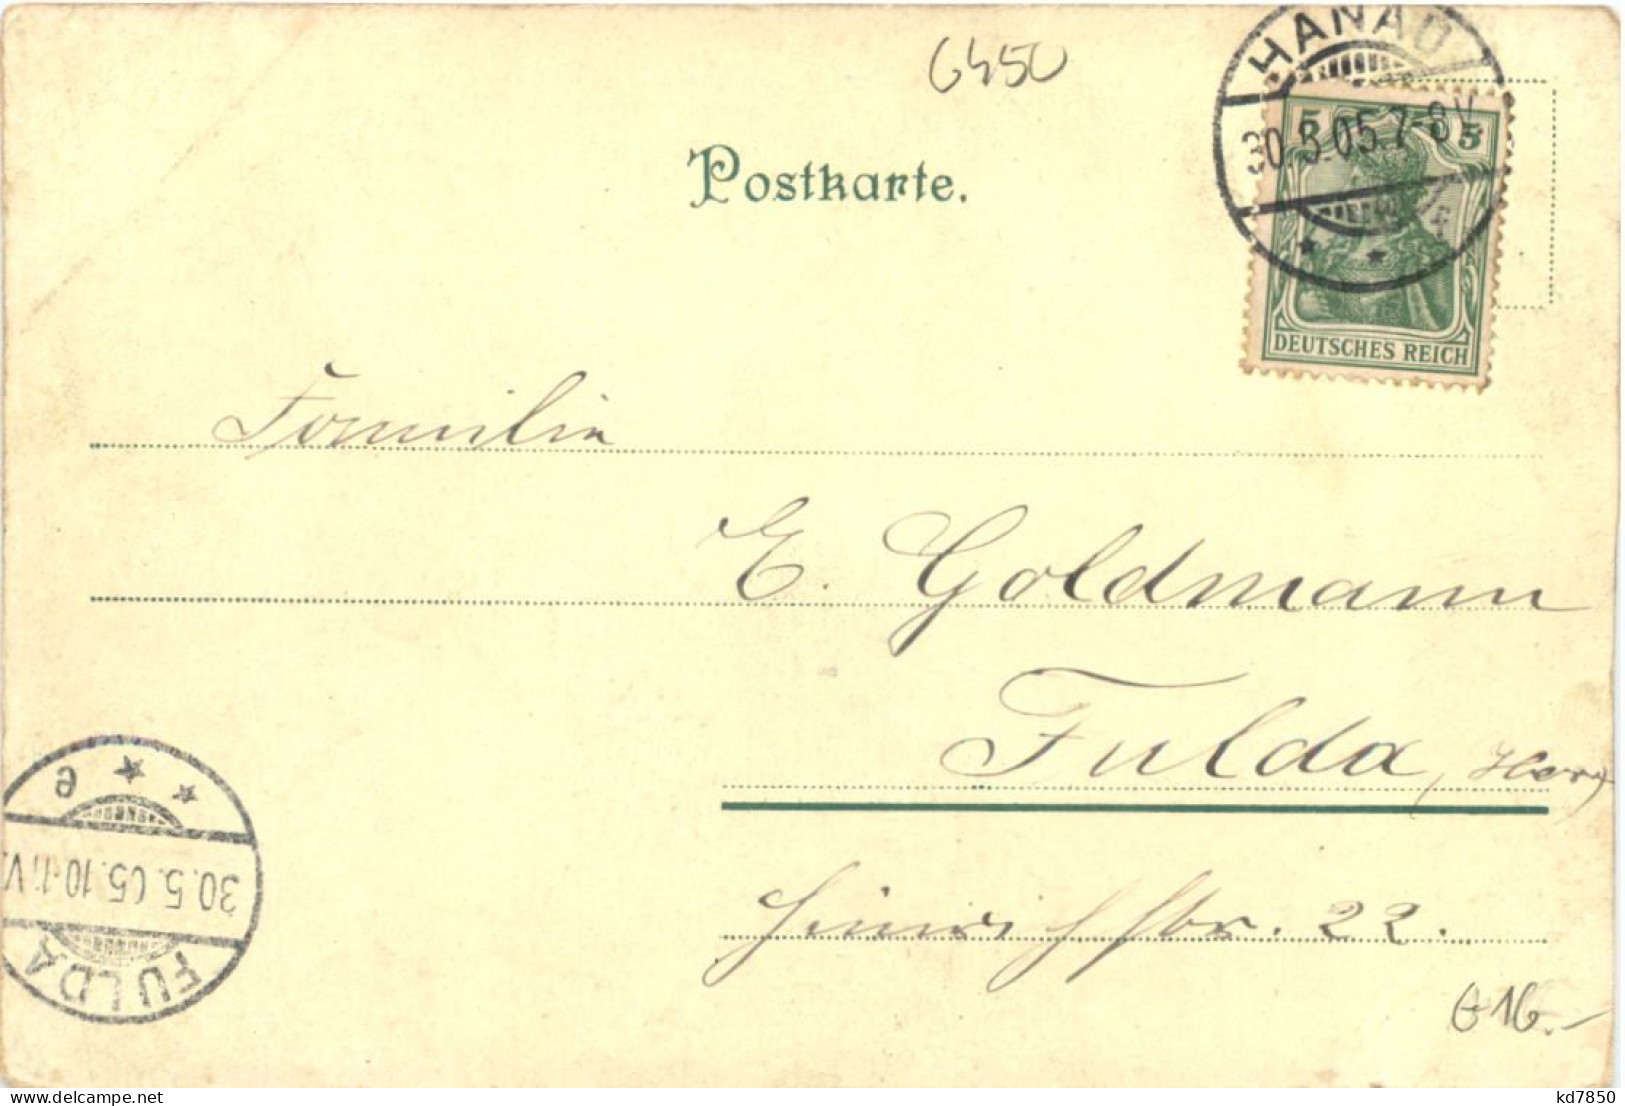 6450
HANAU
30.5.05.7-8V
5 5
DEUTSCHES REICH
Postkarte.
Familie
E. Goldmann
Fulda
Heinrichstr. 22.
e
30.5.05.10-11V.
FULDA
€16.-
kd7850